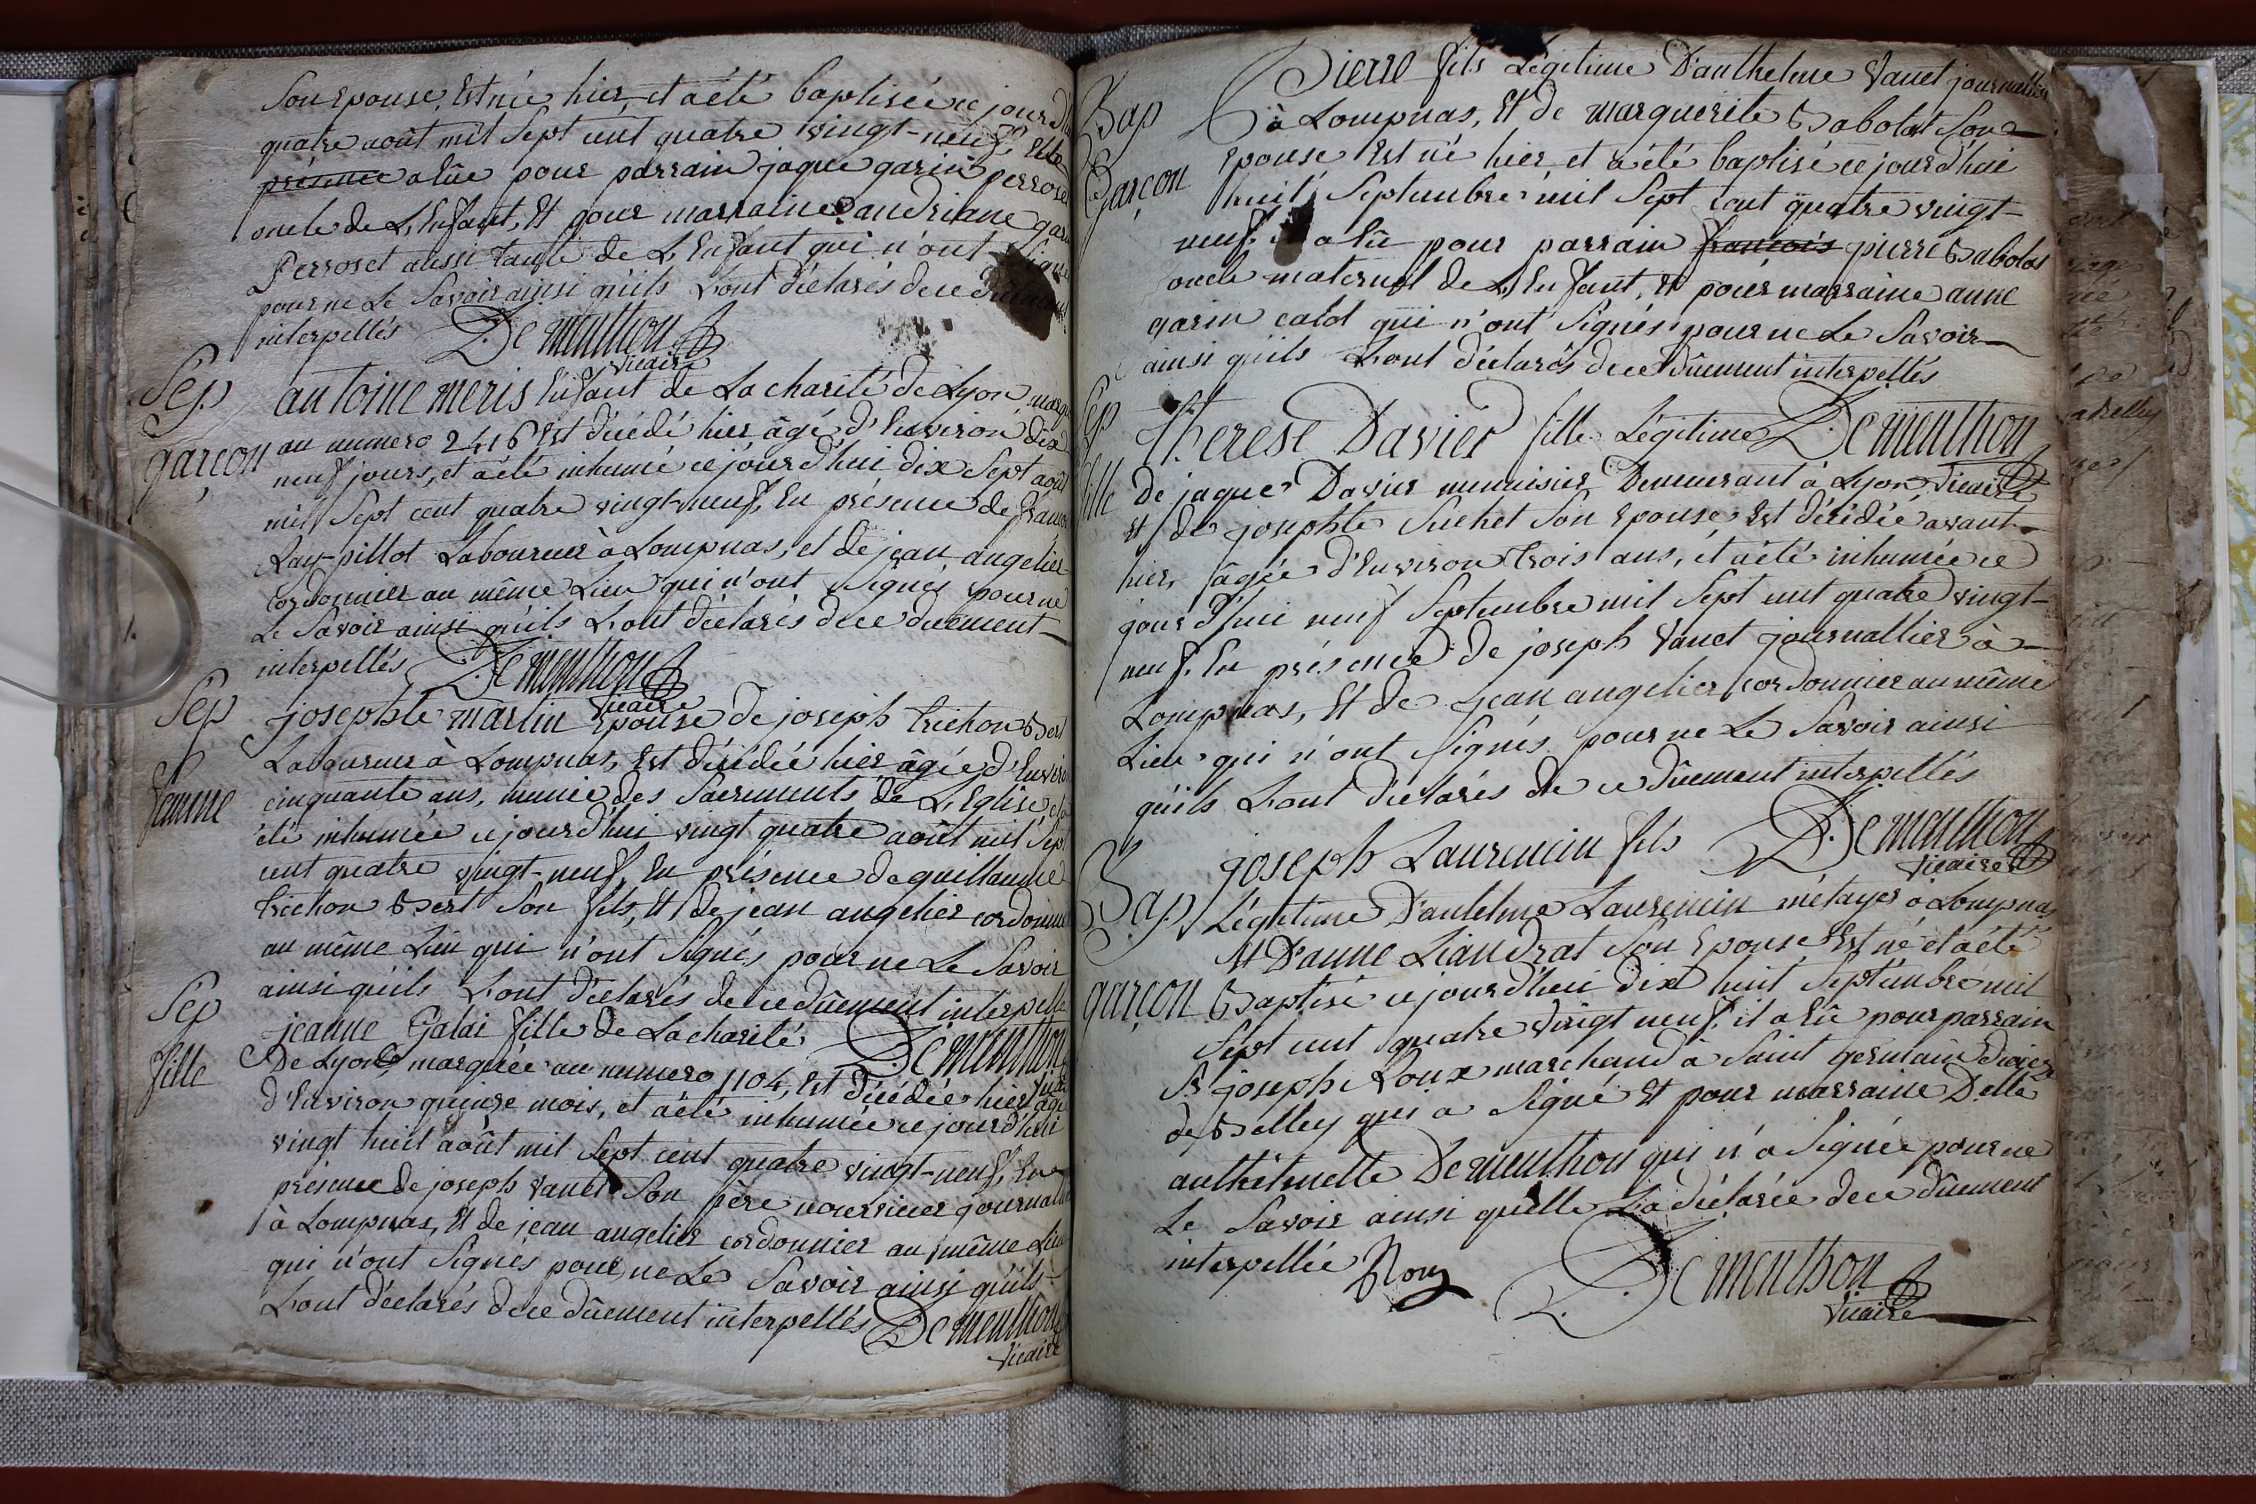 Son epouse, Est née hier, et a été baptisée ce jourd'hui
quatre août mil Sept cent quatre vingt-neuf, Elle
présence a Eûe pour parrain jaque garin perroset
oncle de L'Enfant, Et pour marraine andriane garin
Perroset aussi tante de L'Enfant qui n'ont Signé
pour ne Le Savoir ainsi qu'ils L'ont déclarés de ce dûement
interpellés Dementhon
Vicaire
Sep
garçon
antoine meris Enfant de La charité de Lyon marqué
au numero 2416 Est décédé hier, âgé d'Environ dix
neuf jours, et a été inhumé ce jourd'hui dix Sept août
mil Sept cent quatre vingt-neuf, En présence de françois
Ray-pillot Laboureur à Lompnas, et de jean angelier
Cordonnier au même Lieu qui n'ont Signés pour ne
Le Savoir ainsi qu'ils L'ont déclarés de ce duement
interpellés Dementhon
Vicaire
Sep
femme
josephte martin Epouse de joseph trichon Bert
Laboureur à Lompnas, Est décédée hier âgée d'Environ
cinquante ans, munie des Sacrements de L'Eglise, et a
été inhumée ce jourd'hui vingt quatre août mil Sept
cent quatre vingt-neuf, En présence de guillaume
trichon Bert Son fils, Et de jean angelier cordonnier
au même Lieu qui n'ont Signés pour ne Le Savoir
ainsi qu'ils L'ont déclarés de ce dûement interpellés
Sep
fille
jeanne Galai fille de La charité Dementhon
De Lyon, marquée au numero 1104, Est décédée hier âgée
d'Environ quinze mois, et a été inhumée ce jourd'hui
vingt huit août mil Sept cent quatre vingt-neuf, En
présence de joseph Vanet Son père nourricier journallier
à Lompnas, Et de jean angelier cordonnier au même Lieu
qui n'ont Signés pour ne Le Savoir ainsi qu'ils
L'ont déclarés de ce dûement interpellés Dementhon
Vicaire
Bap
Garçon
Pierre fils Légitime D'anthelme Vanet journallier
à Lompnas, Et de marguerite Babolat Son
Epouse Est né hier et a été baptisé ce jourd'hui
huit Septembre mil Sept cent quatre vingt-
neuf. il a Eû pour parrain françois pierre Babolat
oncle maternel de L'Enfant, Et pour marraine anne
garin calot qui n'ont Signés pour ne Le Savoir
ainsi qu'ils L'ont déclarés de ce dûement interpellés
Sep
fille
Therese Davier fille Légitime Dementhon
De jaque Davier menuisier Demeurant à Lyon, Vicaire
Et de josephte Suchet Son Epouse, Est décédée avant-
hier, âgée d'Environ trois ans, et a été inhumée ce
jourd'hui neuf Septembre mil Sept cent quatre vingt-
neuf, En présence de joseph Vanet journallier à
Lompnas, Et de jean angelier Cordonnier au même
Lieu qui n'ont Signés pour ne Le Savoir ainsi
qu'ils L'ont déclarés de ce dûement interpellés
Bap
garçon
joseph Laurencin fils Dementhon
Vicaire
Légitime D'antelme Laurencin métayer à Lompnas
Et D'anne Liandrat Son Epouse Est né et a été
Baptisé ce jourd'hui dix huit Septembre mil
Sept cent quatre vingt neuf. il a Eû pour parrain
Sr joseph Roux marchand à Saint germain diocese
de Belley qui a Signé Et pour marraine Delle
anthelmette Dementhon qui n'a Signée pour ne
Le Savoir ainsi qu'elle L'a déclarée de ce dûement
interpellée Roux Dementhon
Vicaire